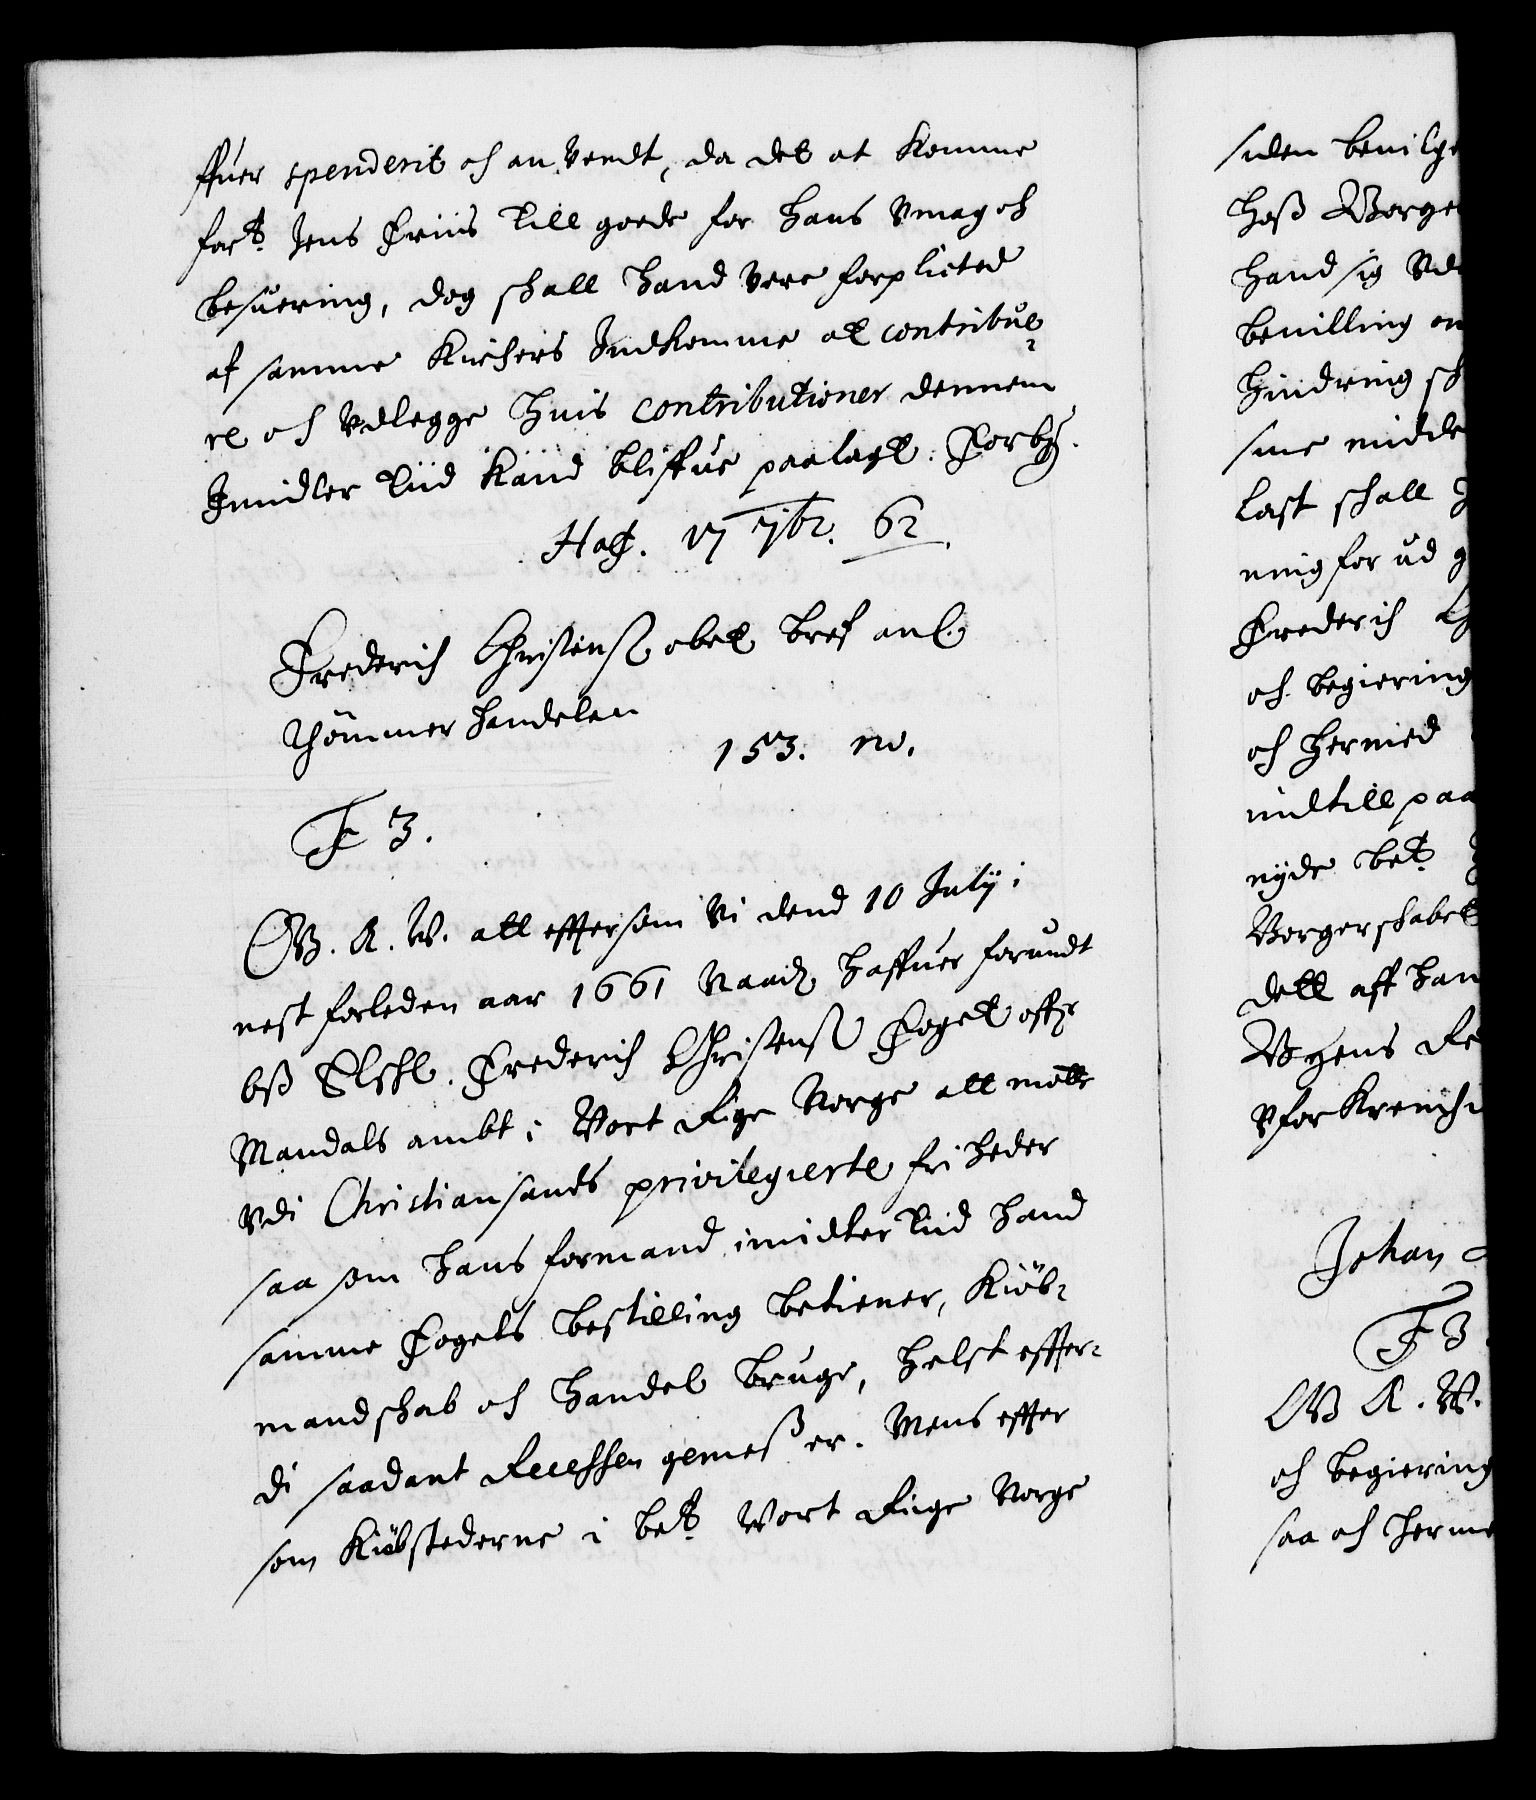 ffuer spenderit och anvendt, da det at komme
fort. Jens Friis till goede for hans Vmag och
besuering, dog schall hand vere forplicted
af samme Kirchers Indkomme at contribue-
re och Vdlegge huis contributioner dennem
Imidler tiid kand bliffue paalagt. Forby.
Haf. 17 7br. 62.
Frederich Christens obet. bref anl.
Thömmer handelen
153. no.
F 3.
G. A. W. att effter som Vi dend 10 Julij i
nest forleden aar 1661 Naad. haffuer forundt
oss Elskl. Frederich Christens Foget offr
Mandals ambt i Vort Rige Norge att motte
Vdi Christiansands privilegierte friheder
saa som hans formand, imidler tiid hand
samme Fogets bestilling betiener, Kiöb-
mandschab och handel bruge, helst effter-
di saadant Recessen gemess er. Mens effter
som Kiöbstederne i bete. Vort Rige Norge
siden beuilg
hoss Borge
hand sig Vd
beuilling
hindring sch
sine midde
last schall
ning for ud g
Frederich
och begiering
och hermed
indtill paa
nyde bet.
Borgerschabet
dett aff han
Byens Re
Vforkrench
Johan
F 3.
A. W.
och begiering
saa och herme